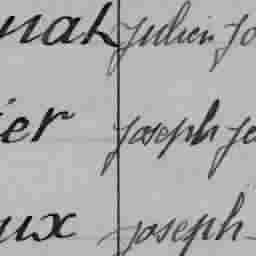 nah Julien Jo
ier Joseph Je
ux Joseph